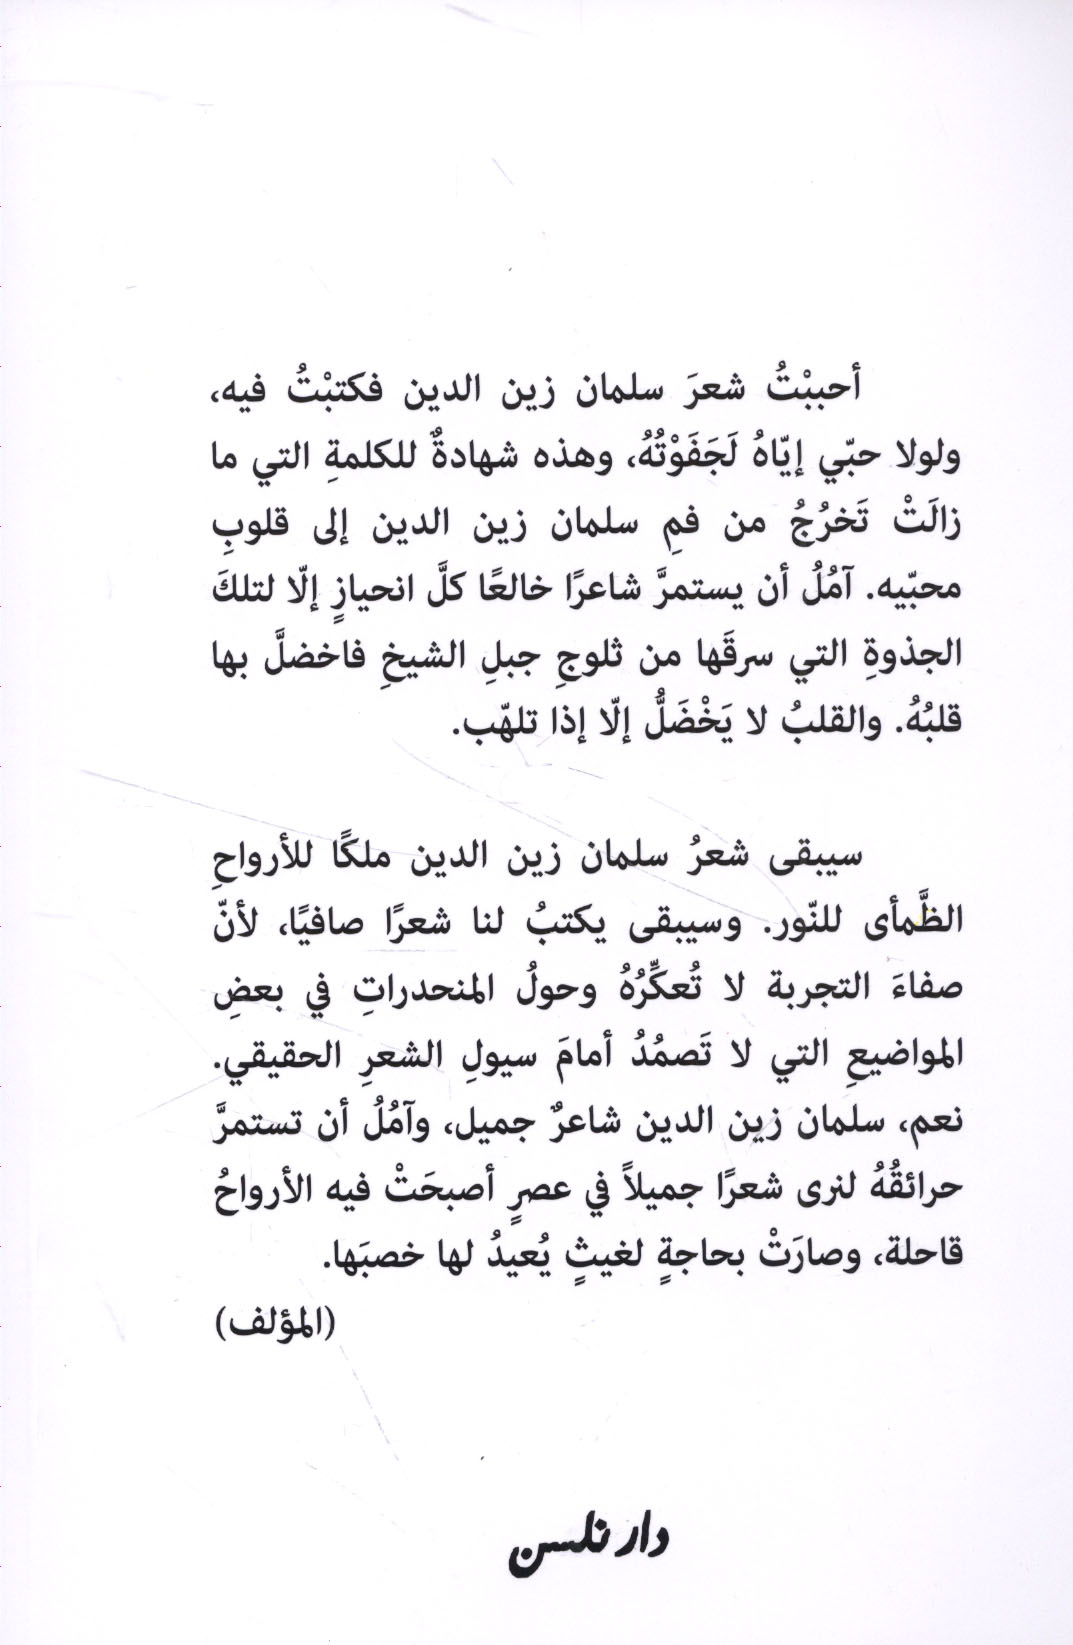 أحببْتُ شعرَ سلمان زين الدين فكتبْتُ فيه،
ولولا حبّي إيّاهُ لَجَفَوْتُهُ، وهذه شهادةٌ للكلمةِ التي ما
زالَتْ تَخرُجُ من فمِ سلمان زين الدين إلى قلوبِ
محبّيه. آمُلُ أن يستمرَّ شاعرًا خالعًا كلَّ انحيازٍ إلّا لتلكَ
الجذوةِ التي سرقَها من ثلوجِ جبلِ الشيخِ فاخضلَّ بها
قلبُهُ. والقلبُ لا يَخْضَلُّ إلّا إذا تلهّب.
سيبقى شعرُ سلمان زين الدين ملكًا للأرواحِ
الظَّمأى للنّور. وسيبقى يكتبُ لنا شعرًا صافيًا، لأنّ
صفاءَ التجربة لا تُعكِّرُهُ وحولُ المنحدراتِ في بعضِ
المواضيعِ التي لا تَصمُدُ أمامَ سيولِ الشعرِ الحقيقي.
نعم، سلمان زين الدين شاعرٌ جميل، وآمُلُ أن تستمرَّ
حرائقُهُ لنرى شعرًا جميلاً في عصرٍ أصبحَتْ فيه الأرواحُ
قاحلة، وصارَتْ بحاجةٍ لغيثٍ يُعيدُ لها خصبَها.
(المؤلف)
دار نلسن